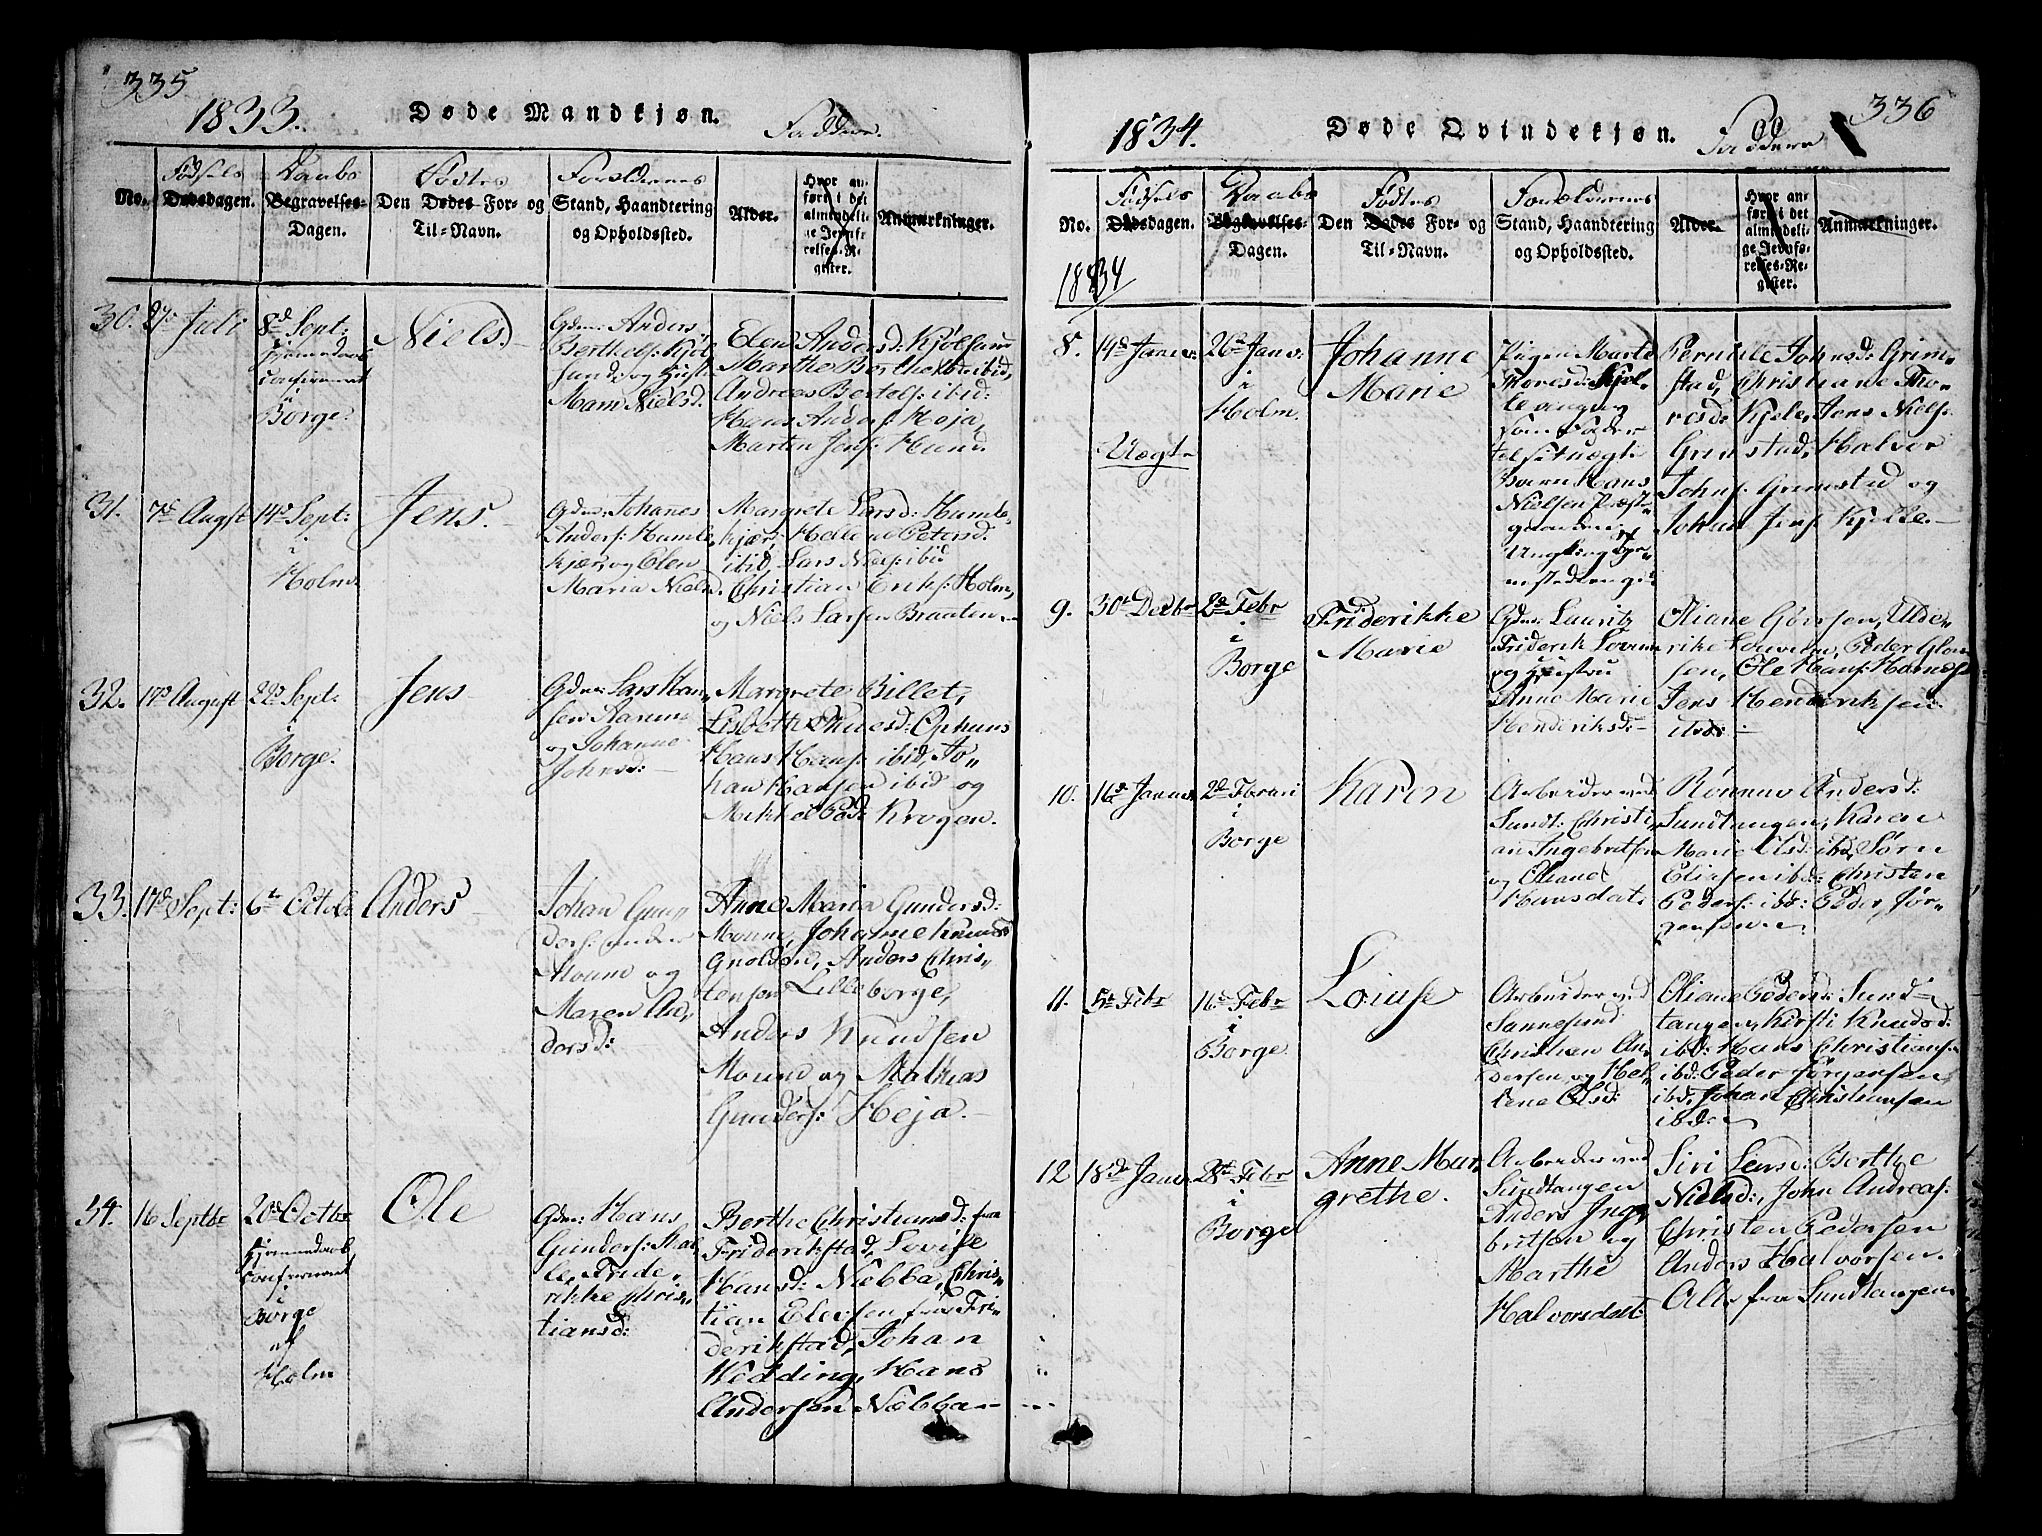 335
1833.
Døde Mandkjøn.
Faddere.
No.
Fødsels
Dødsdagen.
Daabs
Begravelses-
Dagen.
Fødtes
Den Dødes For- og
Til-Navn.
Forældrenes
Stand, Haandtering
og Opholdssted.
Alder.
Hvor an-
ført i det
almindeli-
ge Jevnfø-
relses-Re-
gister.
Anmærkninger.
30.
Juli
8d Sept:
Hjemmedøbt
confirmeret
i
Borge.
Niels
Gdm: Anders
Berthels: Kjøl
sund og Hust
Mari Nielsd.
Elen Andersd: Kjølsund
Marthe Berthelsd: ibid,
Andreas Bertels: ibid:
Hans Anders: Heja,
Marten Jens: Hund
31.
7d Augst
14d Sept:
i
Holm
Jens.
Gdm: Johanes
Anders: Humle
kjær, og Elen
Maria Nielsd
Margrete Larsd: Humle-
kjær, Helene Petersd:
ibid, Lars Niels: ibid
Christian Eriks: Holm,
og Niels Larsen Braaten.
32.
17d August
29d Sept:
i
Borge.
Jens
Gdm: Lars Han-
sen Aarum
og Johanne
Johnsd:
Margrete Billet,
Lisbeth Thuesd: Ophuus
Hans Hans: ibid, Jo-
han Hansen ibid og
Mikkel Ped: Krogen.
33.
17d Sept:
6te Octob:
Anders
Johan Gun-
ders: under
Moum og
Maren An-
dersd:
Anne Maria Gundersd:
Moum, Johanne Knudsd
Gnolsød, Anders Chris-
tensen Lilleborge,
Anders Knudsen
Moum og Mathias
Gunders: Heja.
34.
16 Septbr
20d Octbr
Hjemmedøbt,
confirmeret
i
Borge
af
Holm
Ole
Gdm: Hans
Gunders: Kal-
le, Fride-
rikke Chris-
tiansd:
Berthe Christiansd: fra
Friderikstad, Lovise
Hansd: Næbba, Chris-
tian Elersen fra Fri-
derikstad, Johan
Wedding, Hans
Andersen Næbba
336
1834.
Døde Qvindekjøn.
Faddere
No.
Fødsels
Dødsdagen.
Daabs
Begravelses-
Dagen.
Fødtes
Den Dødes For- og
Til-Navn.
Forældrenes
Stand, Haandtering
og Opholdssted.
Alder.
Hvor an-
ført i det
almindeli-
ge Jevnfø-
relses-Re-
gister.
Anmærkninger.
1834
8.
14d Janv:
Uægte
26d Janv:
i
Holm.
Johanne
Marie
Pigen Marte
Thoresd: Kjøl-
le
Som Fader
til sit uægte
Barn Hans
Nielsen Præste-
gaarden
Ungkarl
Pernille Johnsd: Grim-
stad, Christiane Tho-
resd: Kjele, Jens Niels:
Grimstad, Halvor
Johns: Grimstad og
Johan Jens: Kjølle.
9.
30t Decbr
2d Febr
i
Borge
Friderikke
Marie
Gdm: Lauritz
Friderik Lovum
og Hustru
Anne Marie
Henderiksd:
Oliane Görssen, Ulde-
rike Louvum, Peder Glom
sen, Ole Hans: Hornes
Jens Henderiksen
ibid:
10.
16d Janv:
2d Februari
i
Borge
Karen
Arbeider ved
Sundt: Christi-
an Ingebritsen
og Oliane
Hansdat:
Rønnov Andersd:
Sundtangen, Karen
Marie Olsd: ibd, Sörn
Eliesen ibd: Christen
Peders: ibd: Peder Jör-
gensen
11.
5te Febr
16d Febr
i
Borge
Loiuse
Arbeider ved
Sannesund
Christian An-
dersen, og Hel-
lene Olsd:
Oliane Pedersd: Sund-
tangen, Kirsti Knudsd:
ibd: Hans Christians:
ibd: Peder Jörgensen
ibd, Johan Christiansen
ibd:
12
18d Janv:
28d Febr
i
Borge
Anne Mar-
grethe.
Arbeider ved
Sundtangen
Anders Inge-
britsen og
Marthe
Halvorsdat:
Siri Larsd: Berthe
Nielsd:, John Andreas:
Christen Pedersen
Anders Halvorsen.
Alle fra Sundtangen